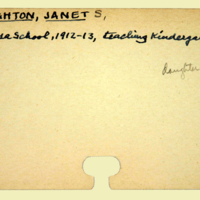 GHTON, JANET S,
School, 1912-13, teaching Kinderga
Daughter